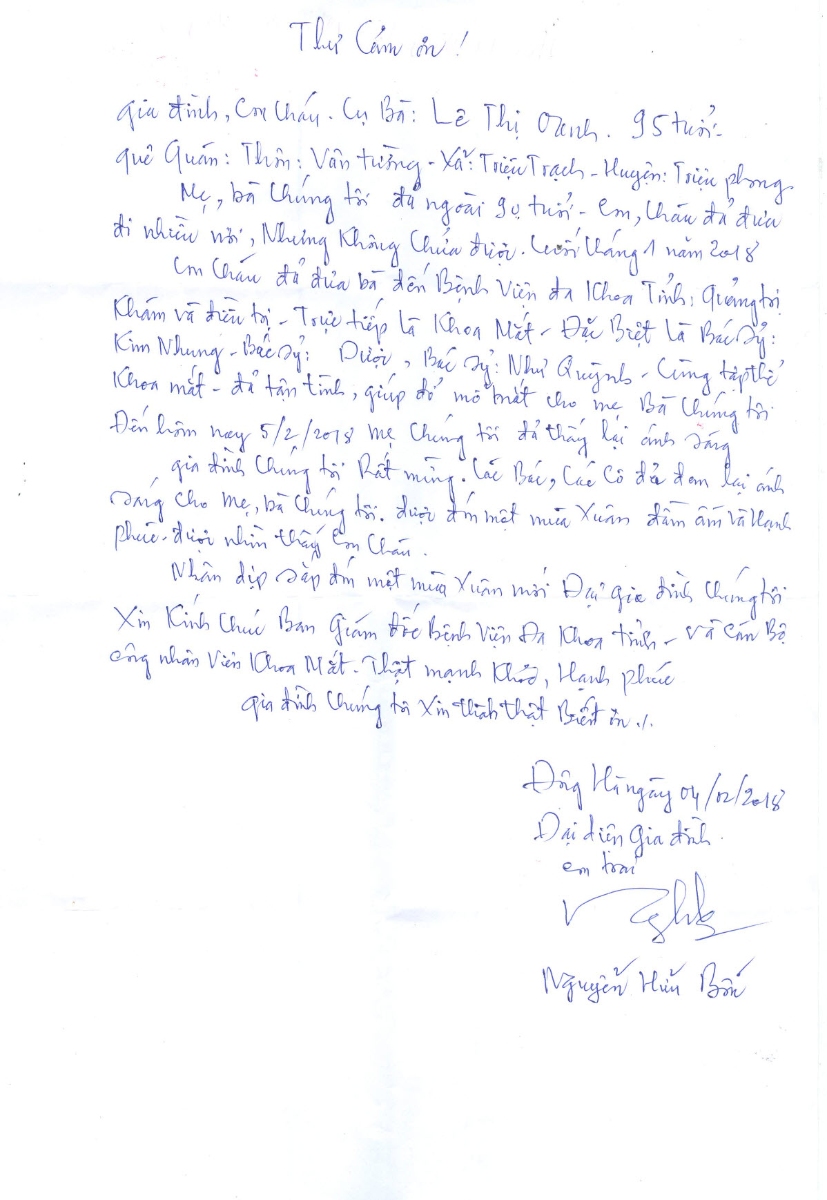 Thư Cảm ơn!
gia đình, Con cháu. Cụ Bà: Lê Thị Oanh. 95 tuổi-
quê Quán: Thôn: Vân tường - Xã: Triệu Trạch - Huyện: Triệu phong
Mẹ, bà Chúng tôi đã ngoài 90 tuổi - Con, Cháu đã đưa
đi nhiều nơi, Nhưng Không Chữa được. Cuối tháng 1 năm 2018
Con Cháu đã đưa bà đến Bệnh Viện đa Khoa Tỉnh: Quảng trị
Khám và điều trị - Trực tiếp là Khoa Mắt - Đặc Biệt là Bác sỷ:
Kim Nhung - Bác sỷ: Dược, Bác sỷ: Như Quỳnh - Cùng tập thể
Khoa mắt - đã tận tình, giúp đỡ mổ mắt cho mẹ Bà Chúng tôi
Đến hôm nay 5/2/2018 mẹ Chúng tôi đã thấy lại ánh sáng
gia đình Chúng tôi Rất mừng. Các Bác, Các Cô đã đem lại ánh
sáng cho Mẹ, bà Chúng tôi. được đón một mùa Xuân đầm ấm và Hạnh
phúc - được nhìn thấy Con Cháu.
Nhân dịp sắp đón một mùa Xuân mới Đại gia đình Chúng tôi
Xin Kính Chúc Ban Giám đốc Bệnh Viện Đa Khoa tỉnh - và Cán Bộ
công nhân Viên Khoa Mắt. Thật mạnh Khỏe, Hạnh phúc
gia đình Chúng tôi Xin thành thật Biết ơn ./.
Đông Hà ngày 04/02/2018
Đại diện Gia đình.
em trai
Nguyễn Hữu Bốn